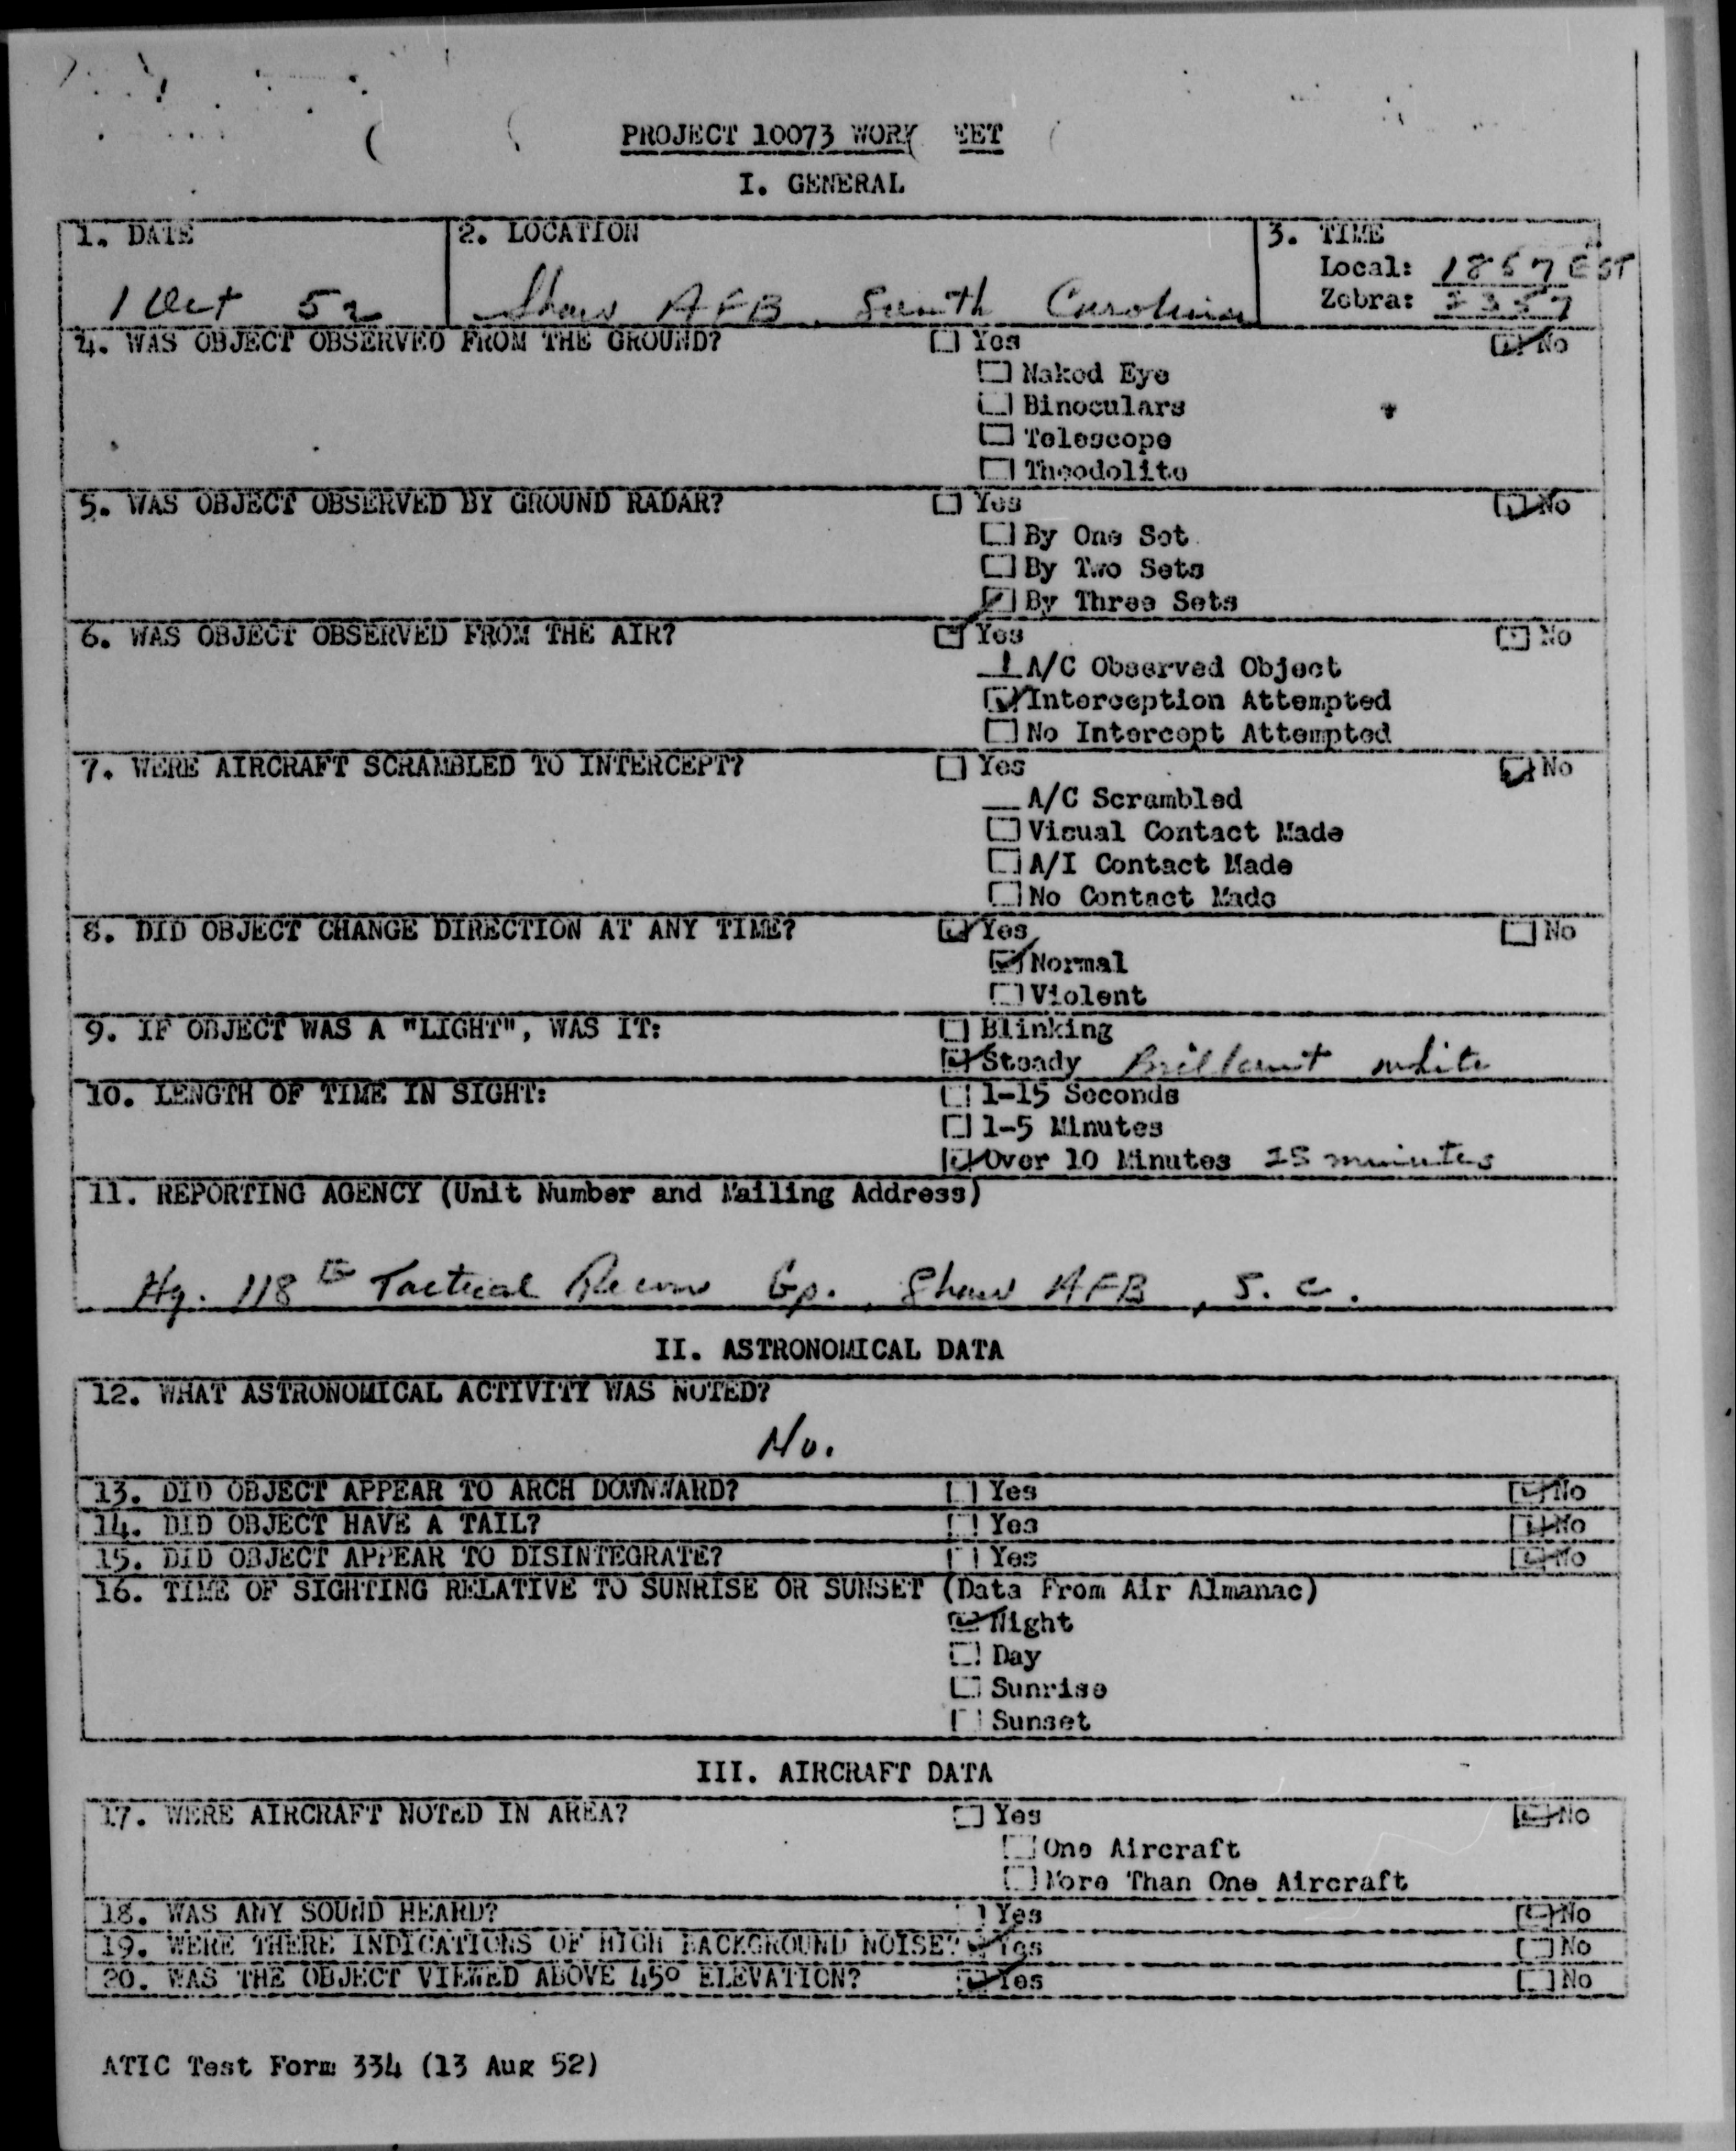 PROJECT 10073 WORK EET
I. GENERAL
1. DATE
2. LOCATION
3. TIME
Local: 1857 EST
Zebra: 2357
1 Oct 52
Shaw AFB, South Carolina
4. WAS OBJECT OBSERVED FROM THE GROUND? Yes No
Naked Eye
Binoculars
Telescope
Theodolite
5. WAS OBJECT OBSERVED BY GROUND RADAR? Yes No
By One Set
By Two Sets
By Three Sets
6. WAS OBJECT OBSERVED FROM THE AIR? Yes No
1 A/C Observed Object
Interception Attempted
No Intercept Attempted
7. WERE AIRCRAFT SCRAMBLED TO INTERCEPT? Yes No
A/C Scrambled
Visual Contact Made
A/I Contact Made
No Contact Made
8. DID OBJECT CHANGE DIRECTION AT ANY TIME? Yes No
Normal
Violent
9. IF OBJECT WAS A "LIGHT", WAS IT: Blinking
Steady Brilliant white
10. LENGTH OF TIME IN SIGHT: 1-15 Seconds
1-5 Minutes
Over 10 Minutes minutes
11. REPORTING AGENCY (Unit Number and Mailing Address)
Hq. 118th Tactical Recon Gp., Shaw AFB, S. C.
II. ASTRONOMICAL DATA
12. WHAT ASTRONOMICAL ACTIVITY WAS NOTED?
No.
13. DID OBJECT APPEAR TO ARCH DOWNWARD? Yes No
14. DID OBJECT HAVE A TAIL? Yes No
15. DID OBJECT APPEAR TO DISINTEGRATE? Yes No
16. TIME OF SIGHTING RELATIVE TO SUNRISE OR SUNSET (Data From Air Almanac)
Night
Day
Sunrise
Sunset
III. AIRCRAFT DATA
17. WERE AIRCRAFT NOTED IN AREA? Yes No
One Aircraft
More Than One Aircraft
18. WAS ANY SOUND HEARD? Yes No
19. WERE THERE INDICATIONS OF HIGH BACKGROUND NOISE? Yes No
20. WAS THE OBJECT VIEWED ABOVE 45° ELEVATION? Yes No
ATIC Test Form 334 (13 Aug 52)